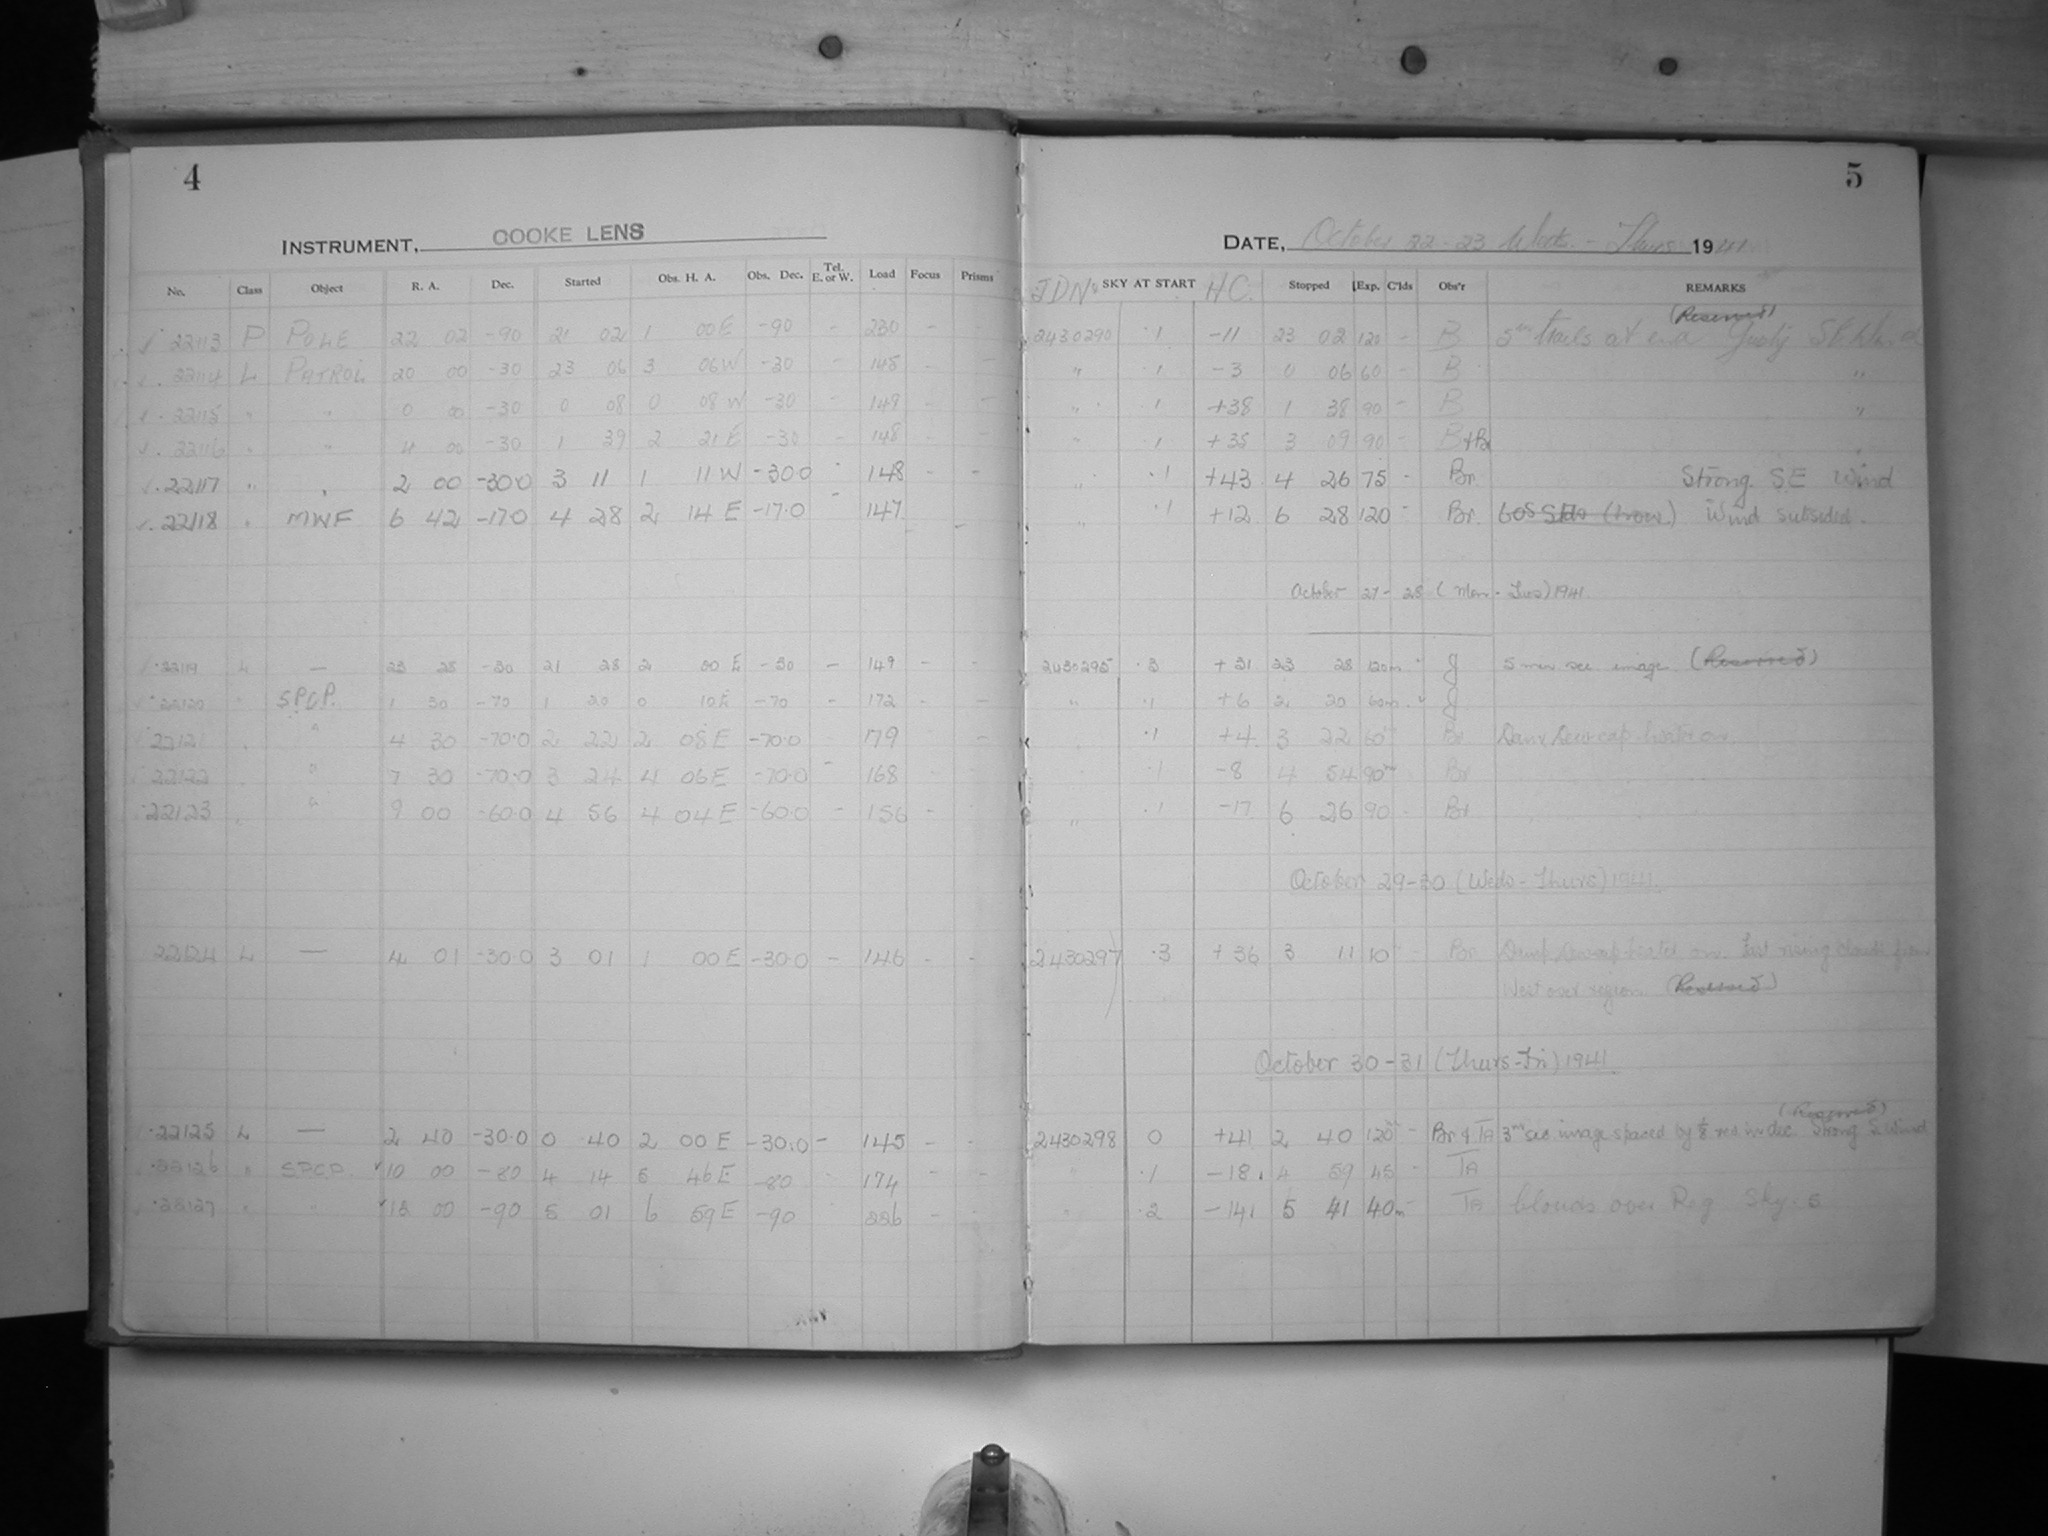 4
5
INSTRUMENT, COOKE LENS
DATE, October 22-23 Weds. - Thurs 1941
No. Class Object R. A. Dec. Started Obs. H. A. Obs. Dec. Tel. E. or W. Load Focus Prisms JDN SKY AT START HC. Stopped Exp. C'lds Obs'r REMARKS
(Reserved)
22113 P POLE 22 02 -90 21 02 1 00E -90 - 230 - 2430290 .1 -11 23 02 120 - B 5 trails at end Gusty SE Wind
22114 L PATROL 20 00 -30 23 06 3 06W -30 - 148 - - " .1 -3 0 06 60 - B "
22115 " " 0 00 -30 0 08 0 08W -30 - 149 - - " .1 +38 1 38 90 - B "
22116 " " 4 00 -30 1 39 2 21E -30 - 148 - - " .1 +35 3 09 90 - B+Br "
22117 " " 2 00 -30.0 3 11 1 11W -30.0 - 148 - - " .1 +43 4 26 75 - Br. Strong SE Wind
22118 " MWF 6 42 -17.0 4 28 2 14E -17.0 - 147 - - " .1 +12 6 28 120 - Br. Wind subsided.
October 27-28 (Mon - Tues) 1941
22119 L — 23 28 -30 21 28 2 00E -30 - 149 - - 2430295 .3 +31 23 28 120m J 5 min sec. image (Reserved)
22120 " S.P.C.P. 1 30 -70 1 20 0 10E -70 - 172 - - " .1 +6 2 20 60m J
22121 " " 4 30 -70.0 2 22 2 08E -70.0 - 179 - - .1 +4 3 22 60m Br Dewcap heater on.
22122 " " 7 30 -70.0 3 24 4 06E -70.0 - 168 - - .1 -8 4 54 90m Br
22123 " " 9 00 -60.0 4 56 4 04E -60.0 - 156 - - " .1 -17 6 26 90 - Br "
October 29-30 (Weds - Thurs) 1941.
22124 L — 4 01 -30.0 3 01 1 00E -30.0 - 146 - - 2430297 .3 +36 3 11 10 - Br. Dewcap heater on. Fast rising clouds from
West over region. (Reserved)
October 30-31 (Thurs-Fri) 1941.
(Reserved)
22125 L — 2 40 -30.0 0 40 2 00E -30.0 - 145 - - 2430298 0 +41 2 40 120m - Br & TA 3m sec image spaced by 1/8 rev in dec. Strong S. Wind
22126 " SPCP. 10 00 -80 4 14 5 46E -80 174 - - " .1 -18 4 59 45 - TA
22127 " " 18 00 -90 5 01 6 59E -90 236 - - " .2 -141 5 41 40m - TA Clouds over Reg Sky .6